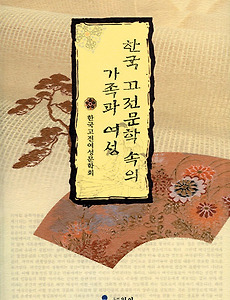 한국 고전문학 속의
가족과 여성
한국고전여성문학회